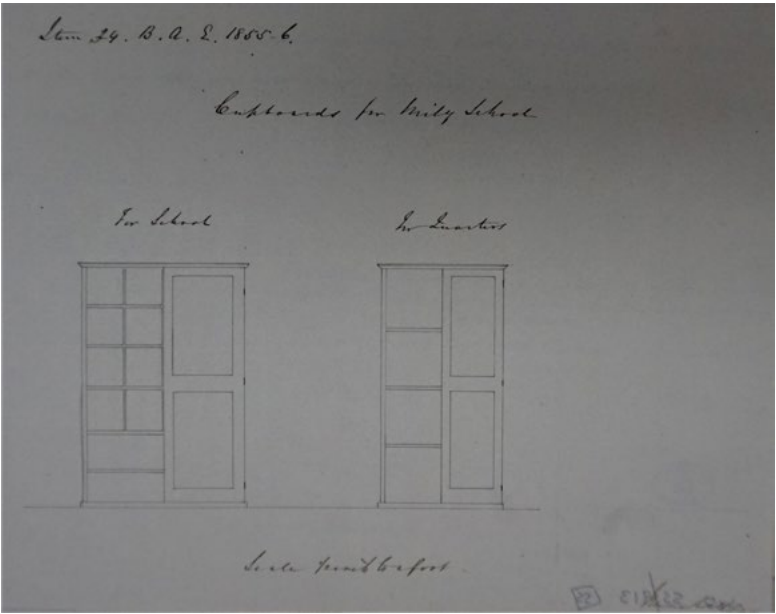 Item 24. B. A. E. 1855-6.
Cupboards for Mily School
For School
For Quarters
Scale to a foot